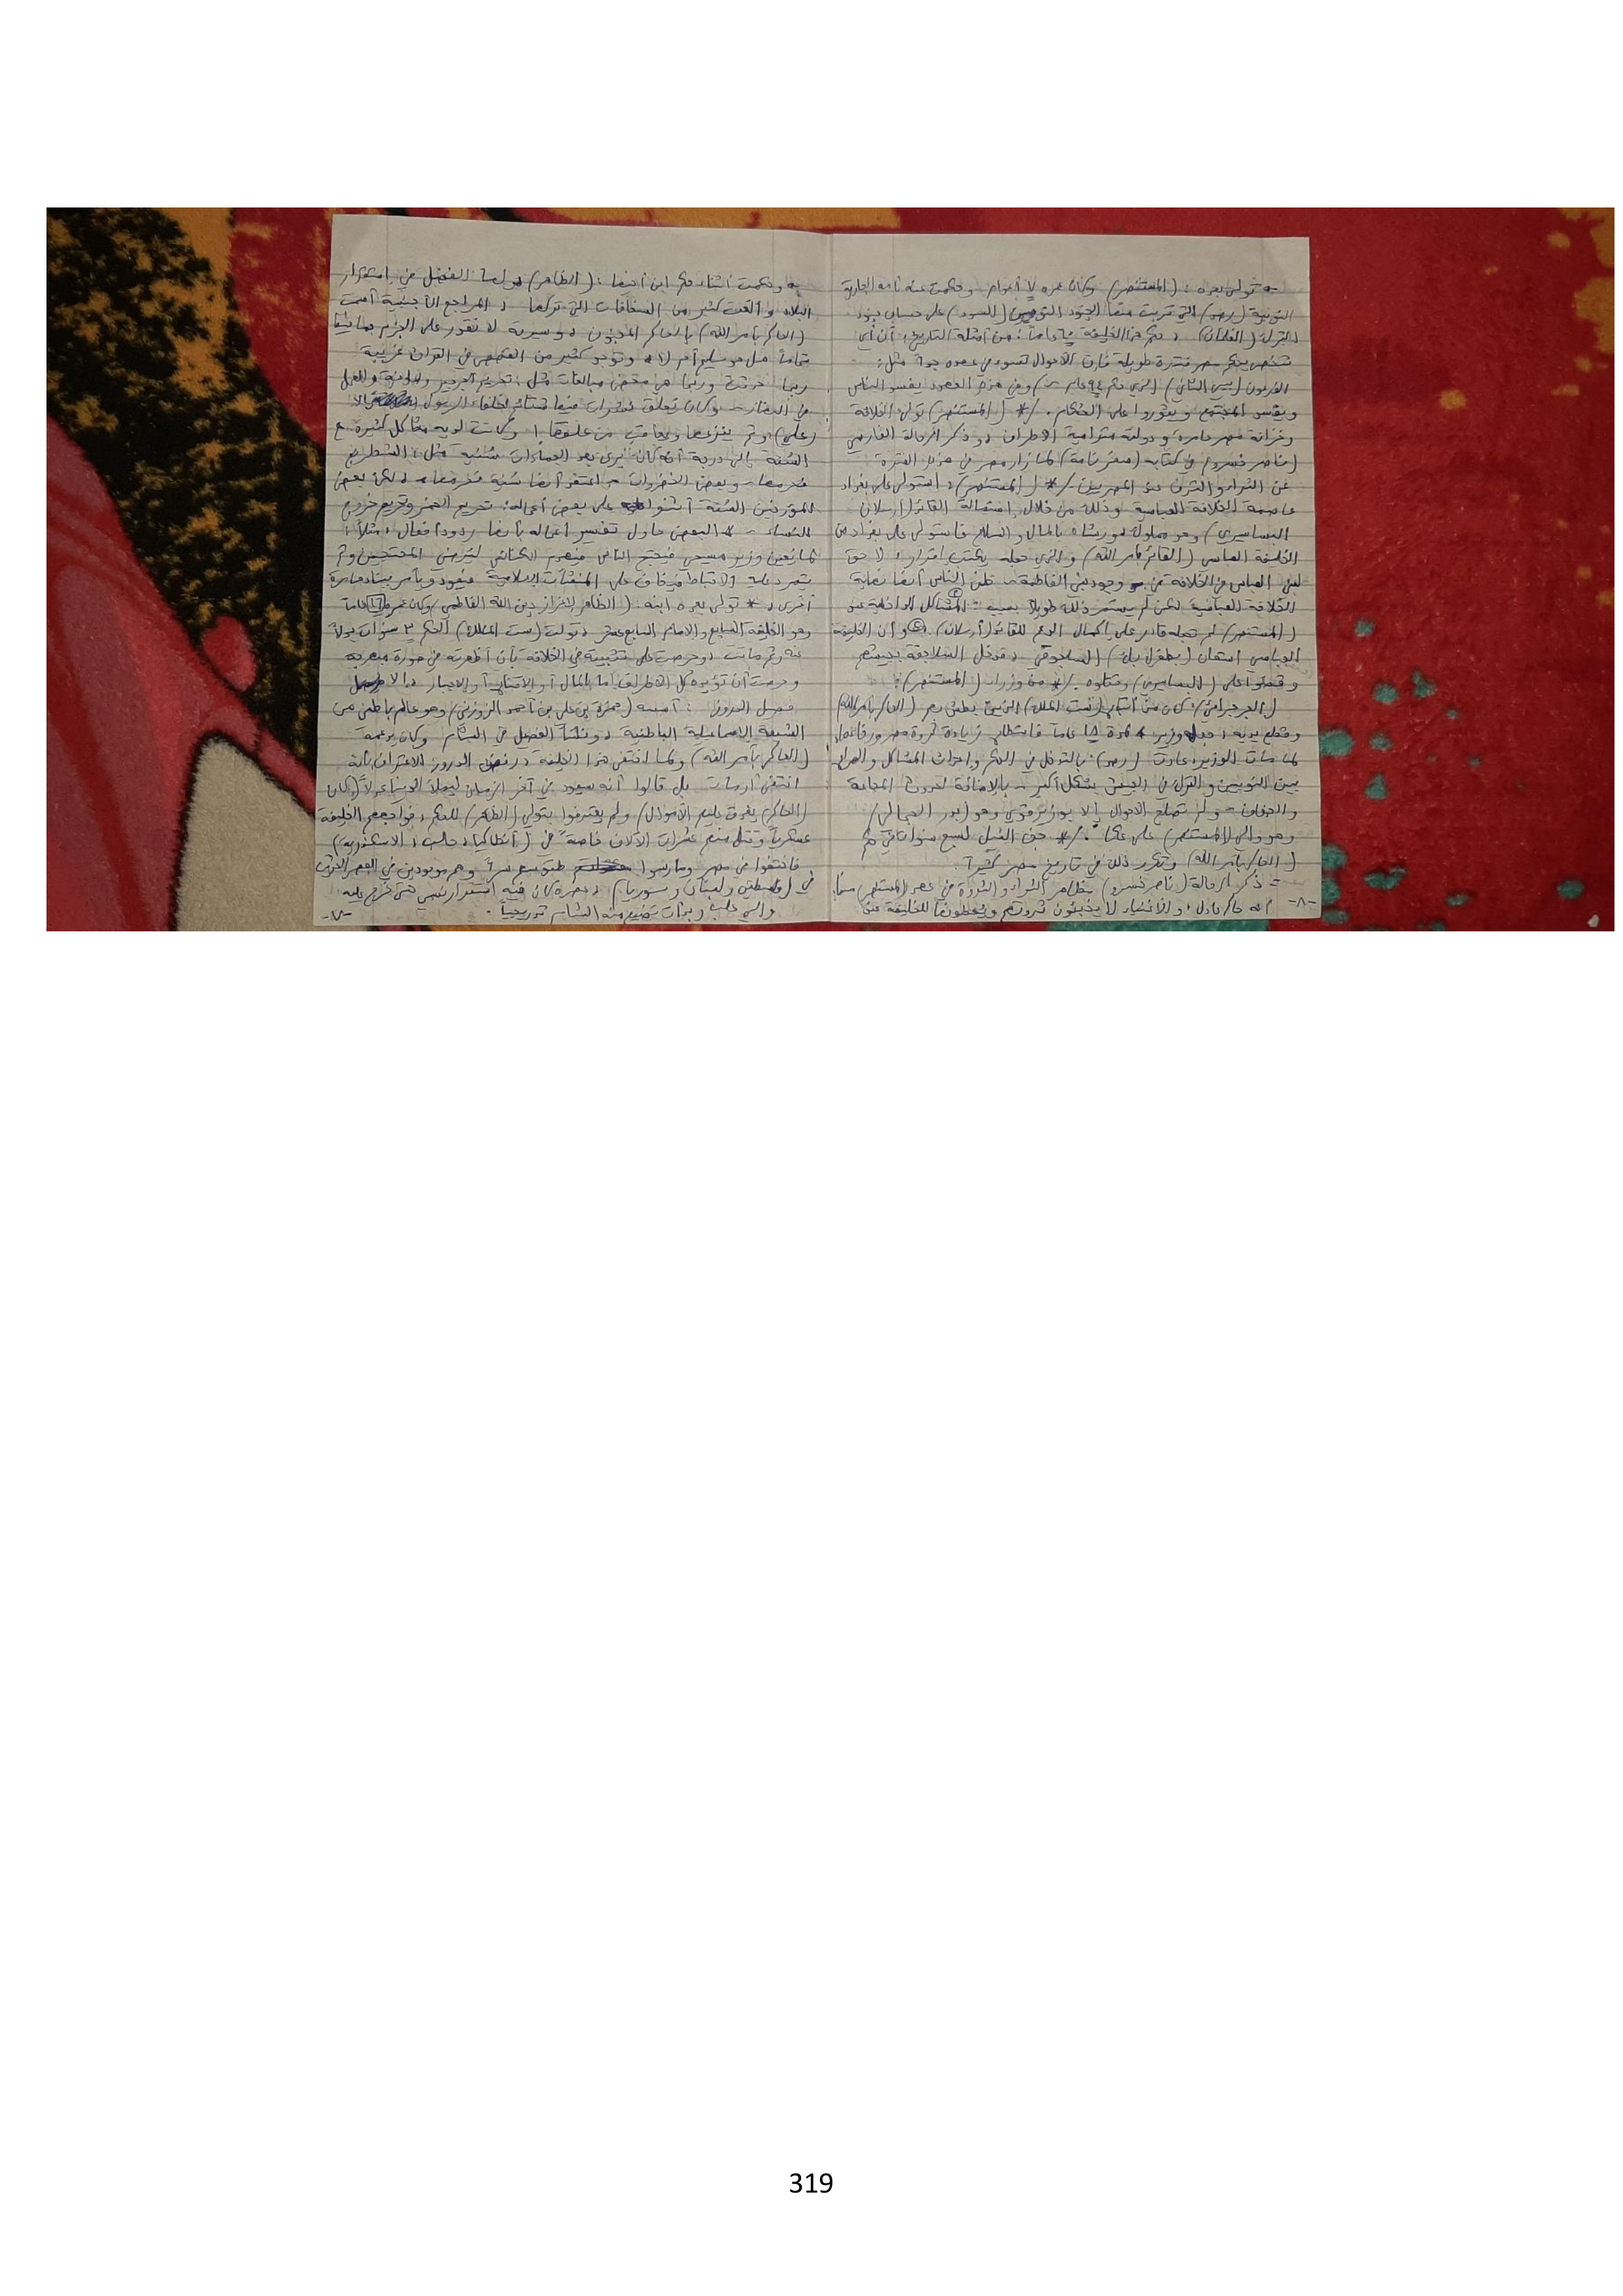 وحكمت أثناء حكم ابن أخيها: (الظاهر) ولها الفضل في استقرار
البلاد وألغت كثير من السخافات التي تركها، المراجع الأجنبية أسمت
(الحاكم بأمر الله) بالحاكم المجنون، وسيرته لا نقدر على الجزم بها
تماماً هل هو سليم أم لا، وتوجد كثير من القصص في القرآن غريبة
ربما حدثت وربما هي محض مبالغات مثل: تحريم
وكان يعلق فيها شتائم لخلفاء الرسول إلا
(علي) ثم ينزعها ويعاقب من علقها! وكانت لديه مشاكل كثيرة مع
السُنة إلى درجة أنه كان يرى بعد سُنية مثل: الشطرنج
فحرمها، وبعض الخضروات اعتقد أنها سُنية فحرمها، لكن بعض
المؤرخين السُنة أثنوا على بعض أعماله: تحريم الخمر وتحريم خروج
النساء، البعض حاول تفسير أعماله بأنها ردود أفعال، مثلاً:
لما يُعين وزير مسيحي فيحتج الناس فيهدم الكنائس ليُرضي المحتجين ثم
يتمرد عليه الأقباط فيخاف على المنشآت الإسلامية فيعود ويأمر ببناء
أخرى. * تولى بعده ابنه: (الظاهر لإعزاز دين الله الفاطمي) وكان عمره 16 عاماً
وهو الخليفة السابع والإمام السابع عشر، تولت (ست الملك) الحكم 3 سنوات بدلاً
عنه ثم ماتت، وحرصت على تثبيته في الخلافة بأن أظهرته في صورة مبهرة
وحرصت أن تؤيده كل الأطراف إما بالمال أو الاقتناع أو الإجبار
فصيل الدروز: أسسه (حمزة بن علي بن أحمد الزوزني) وهو عالم باطني من
الشيعة الإسماعيلية الباطنية، ونشأ الفصيل في الشام وكان يدعمه
(الحاكم بأمر الله) ولما اختفى هذا الخليفة، رفض الدروز الاعتراف بأنه
اختفى أو مات بل قالوا أنه سيعود في آخر الزمان ليملأ الدنيا عدلاً (كان
(الحاكم) يغرق عليهم الأموال) ولم يعترفوا بتولي (الظاهر) للحكم، فواجههم الخليفة
عسكرياً وقتل منهم عشرات الآلاف خاصةً في (أنطاكيا، حلب، الإسكندرية)
فاختفوا من مصر ومارسوا طقوسهم سراً وهم موجودين في العصر الحديث
في (فلسطين ولبنان وسوريا)، عصره كان فيه استقرار نسبي حتى خرج عليه
والي حلب وبدأت تضيع منه الشام تدريجياً.
-٧-
تولى بعده: (المستنصر) وكان عمره 7 أعوام وحكمت عنه أمه الجارية
النوبية (رصد) التي قربت منها الجنود النوبيين (السود) على حساب جنود
الترك (الغلمان)، حكم هذا الخليفة عاماً: من أمثلة التاريخ: أن أي
شخص يحكم مصر فترة طويلة فإن الأحوال تسوء في عهده جداً مثل:
الفرعون (بيبي الثاني) الذي حكم 94 عام، وفي هذه العهود يفسد الناس
ويفسد المجتمع ويثوروا على الحكام. /* (المستنصر) تولى الخلافة
وخزانة مصر عامرة ودولته مترامية الأطراف، وذكر الرحالة الفارسي
(ناصر خسرو) في كتابه (سفر نامة) لما زار مصر في هذه الفترة
عن الثراء والترف عند المصريين. /* (المستنصر): استولى على بغداد
عاصمة الخلافة العباسية وذلك من خلال استمالة القائد (أرسلان
البساسيري) وهو مملوك فورشاه بالمال والسلاح فاستولى على بغداد من
الخليفة العباسي (القائم بأمر الله) والذي جعله يكتب إقرار: لا حق
لبني العباس في الخلافة من وجود بني الفاطمة، ظن الناس أنها نهاية
الخلافة العباسية لكن لم يستمر ذلك طويلاً بسبب: ① المشاكل الداخلية عند
(المستنصر) لم تجعله قادر على إكمال الدعم للقائد (أرسلان). ② وأن الخليفة
العباسي استعان (بطغرل بك) السلجوقي، فدخل السلاجقة بجيشهم
وقضوا على (البساسيري) وقتلوه. /* من وزراء (المستنصر):
(الجرجرائي) كان من أتباع (ست الملك) الذين بطش بهم (الحاكم بأمر الله)
وقطع يديه، جعله وزير لمدة 18 عاماً فاستطاع زيادة ثروة مصر ورفاهها،
لما مات الوزير: عادت (رصد): بالتدخل في الحكم وإحداث المشاكل والصراع
بين النوبيين والترك في الجيش بشكل أكبر، بالإضافة لحدوث المجاعة
والجفاف، ولم تصلح الأحوال إلا بوزير قوي وهو (بدر الجمالي)
وهو والي (المستنصر) على عكا. /* جف النيل لسبع سنوات في حكم
(الحاكم بأمر الله) وتكرر ذلك في تاريخ مصر كثيراً.
- ذكر الرحالة (ناصر خسرو) مظاهر الثراء والثروة في عصر (المستنصر) منها:
أنه حاكم عادل، والأغنياء لا يخبئون ثروتهم ويعطونها للخليفة عند
-٨-
319